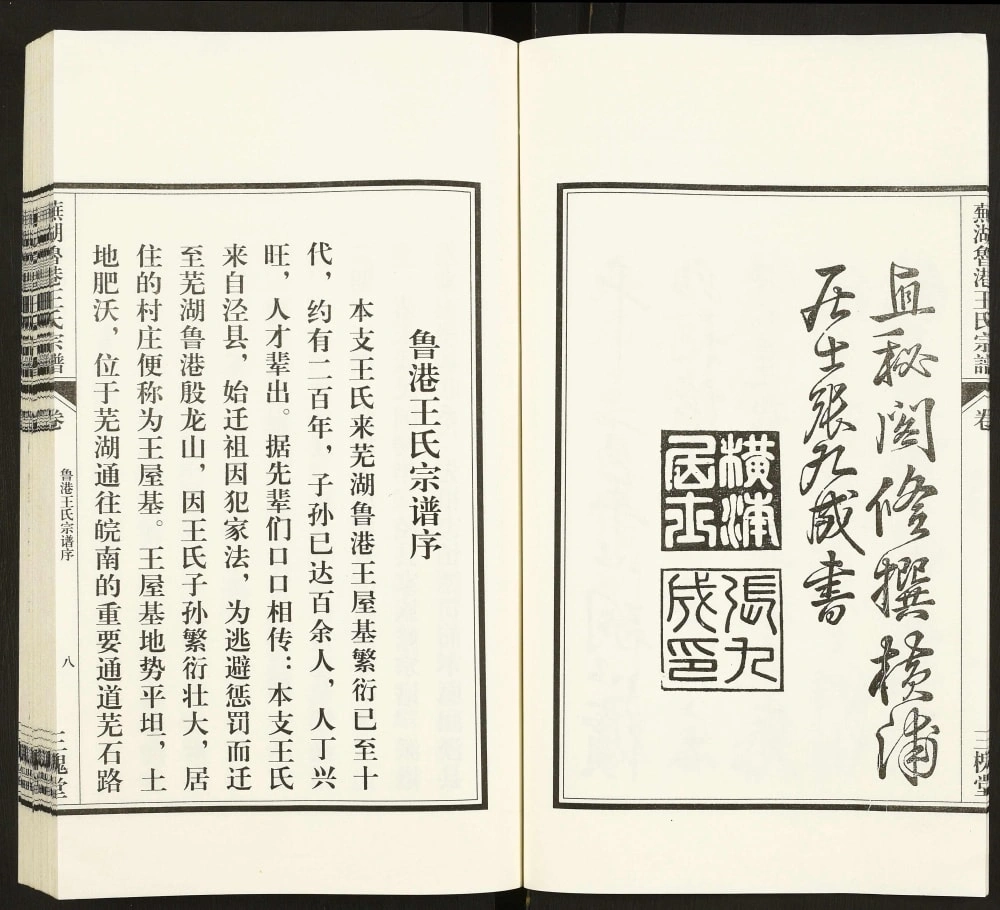 蕪湖魯港王氏宗譜
卷
三槐堂
直秘閣修撰橫浦
居士張九成書
橫浦
居士
張九
成印
鲁港王氏宗谱序
本支王氏来芜湖鲁港王屋基繁衍已至十
代，约有二百年，子孙已达百余人，人丁兴
旺，人才辈出。据先辈们口口相传：本支王氏
来自泾县，始迁祖因犯家法，为逃避惩罚而迁
至芜湖鲁港殷龙山，因王氏子孙繁衍壮大，居
住的村庄便称为王屋基。王屋基地势平坦，土
地肥沃，位于芜湖通往皖南的重要通道芜石路
蕪湖魯港王氏宗譜
卷
鲁港王氏宗谱序
八
三槐堂